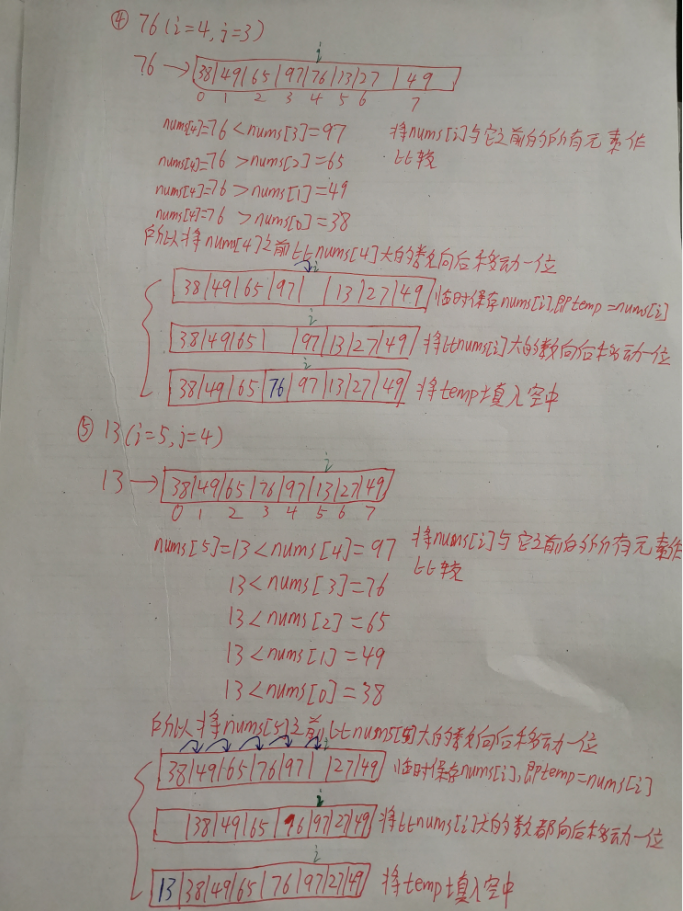 ④ 76(i=4,j=3)
i
76→ 38|49|65|97|76|13|27|49
0 1 2 3 4 5 6 7
nums[4]=76<nums[3]=97 将nums[i]与它之前的所有元素作
nums[4]=76>nums[2]=65 比较
nums[4]=76>nums[1]=49
nums[4]=76>nums[0]=38
所以将nums[4]之前比nums[4]大的数向后移动一位
i
38|49|65|97| |13|27|49 临时保存nums[i],即temp=nums[i]
i
38|49|65| |97|13|27|49 将比nums[i]大的数向后移动一位
i
38|49|65|76|97|13|27|49 将temp填入空中
⑤ 13(i=5,j=4)
i
13→ 38|49|65|76|97|13|27|49
0 1 2 3 4 5 6 7
nums[5]=13<nums[4]=97 将nums[i]与它之前的所有元素作
13<nums[3]=76 比较
13<nums[2]=65
13<nums[1]=49
13<nums[0]=38
所以将nums[5]之前比nums[5]大的数向后移动一位
i
38|49|65|76|97| |27|49 临时保存nums[i],即temp=nums[i]
i
|38|49|65|96|97|27|49 将比nums[i]大的数都向后移动一位
i
13|38|49|65|76|97|27|49 将temp填入空中